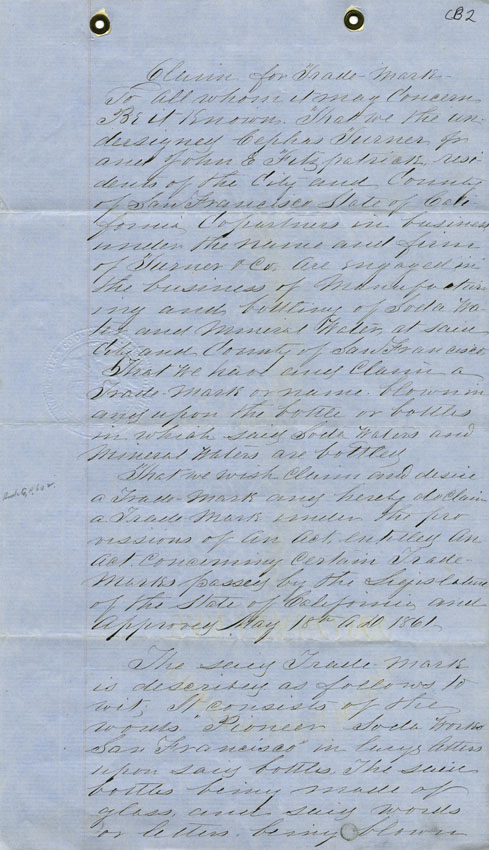 CB2
Claim for Trade-Mark-
To all whom it may Concern
Be it Known. That we the un-
dersigned Cephas Turner Jr
and John E Fitzpatrick, resi-
dents of the City and County
of San Francisco State of Cali-
fornia, Copartners in business
under the name and firm
of Turner & Co, are engaged in
the business of Manufactur-
ing and bottling of Soda Wa-
ter and Mineral Water, at said
City and County of San Francisco.
That we have and Claim a
Trade-Mark or name blown in
and upon the bottle or bottles
in which said Soda Waters and
Mineral Waters are bottled
That we wish Claim and desire
a Trade-Mark and hereby do claim
a Trade Mark under the pro
visions of an Act entitled An
Act Concerning Certain Trade-
Marks passed by the Legislature
of the State of California and
Approved May 18th A.D. 1861.
The said Trade-Mark
is described as follows to
wit; It consists of the
words "Pioneer Soda Works
San Francisco" in large letters
upon said bottles, The said
bottles being made of
glass, and said words
or letters being blown